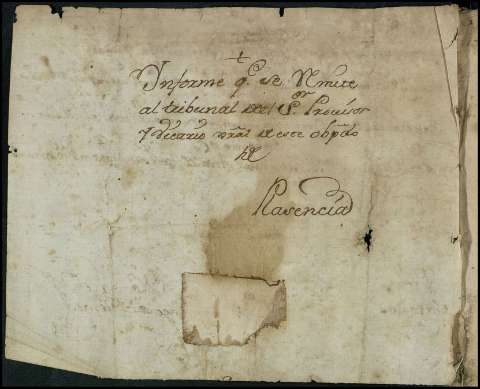 +
Informe q.e se Rmite
al tribunal del S.or Provisor
y Vicario gral de este obp̃do
de
Plasencia